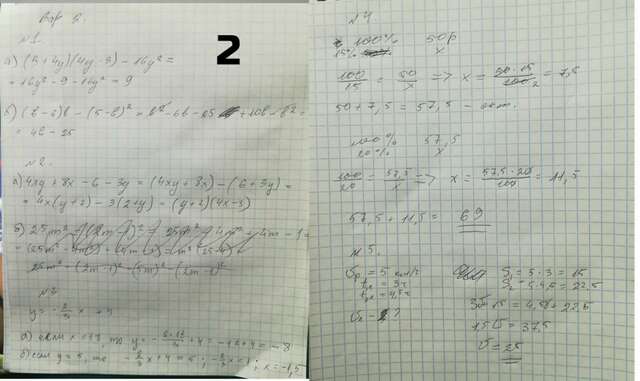 Вар 2.
2
№1.
а) (3 + 4y)(4y - 3) - 16y² =
= 16y² - 9 - 16y² = 9
б) - (5 - b)² = b² - 6b - 25 + 10b - b² =
= 4b - 25
№2.
а) 4xy + 8x - 6 - 3y = (4xy + 8x) - (6 + 3y) =
= 4x(y + 2) - 3(2 + y) = (y + 2)(4x - 3)
б) 25m² - (2m - 1)² =
№3
y = - 2/3 x + 4
а) если x = 18, то y = + 4 = -12 + 4 = -8
б) если y = 5, то - 2/3 x + 4 = 5; - 2/3 x = 1; x = -1,5
№4
100% 50р
15% x
100/15 = 50/x => x = 50 · 15/100 = 7,5
50 + 7,5 = 57,5 -
100% 57,5
20% x
100/20 = 57,5/x => x = 57,5 · 20/100 = 11,5
57,5 + 11,5 = 69
№5.
= 5 км/ч
= 3ч
= 4,5ч
- ?
S₁ = 5 · 3 = 15
S₂ = 5 · 4,5 = 22,5
+ 22,5
1,5v = 37,5
v = 25